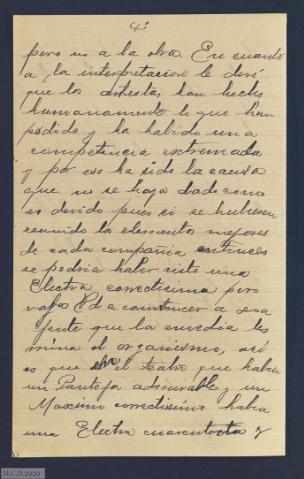 4º
pero no a la obra. En cuanto
a la interpretacion le diré
que los artistas han hecho
humanamente lo que han
podido y ha habido una
competencia extremada
y por eso ha sido la causa
que no se haya dado como
es devido pues si se hubiesen
reunido los elementos mejores
de cada compañia entonces
se podria haber visto una
Electra correctisima pero
vaya Vd a convencer a esa
gente que la envidia les
mina el organismo, asi
es que en el teatro que habia
un Pantoja admirable y un
Maximo correctisimo habia
una Electra cuarentota y
M.C.D. 2020